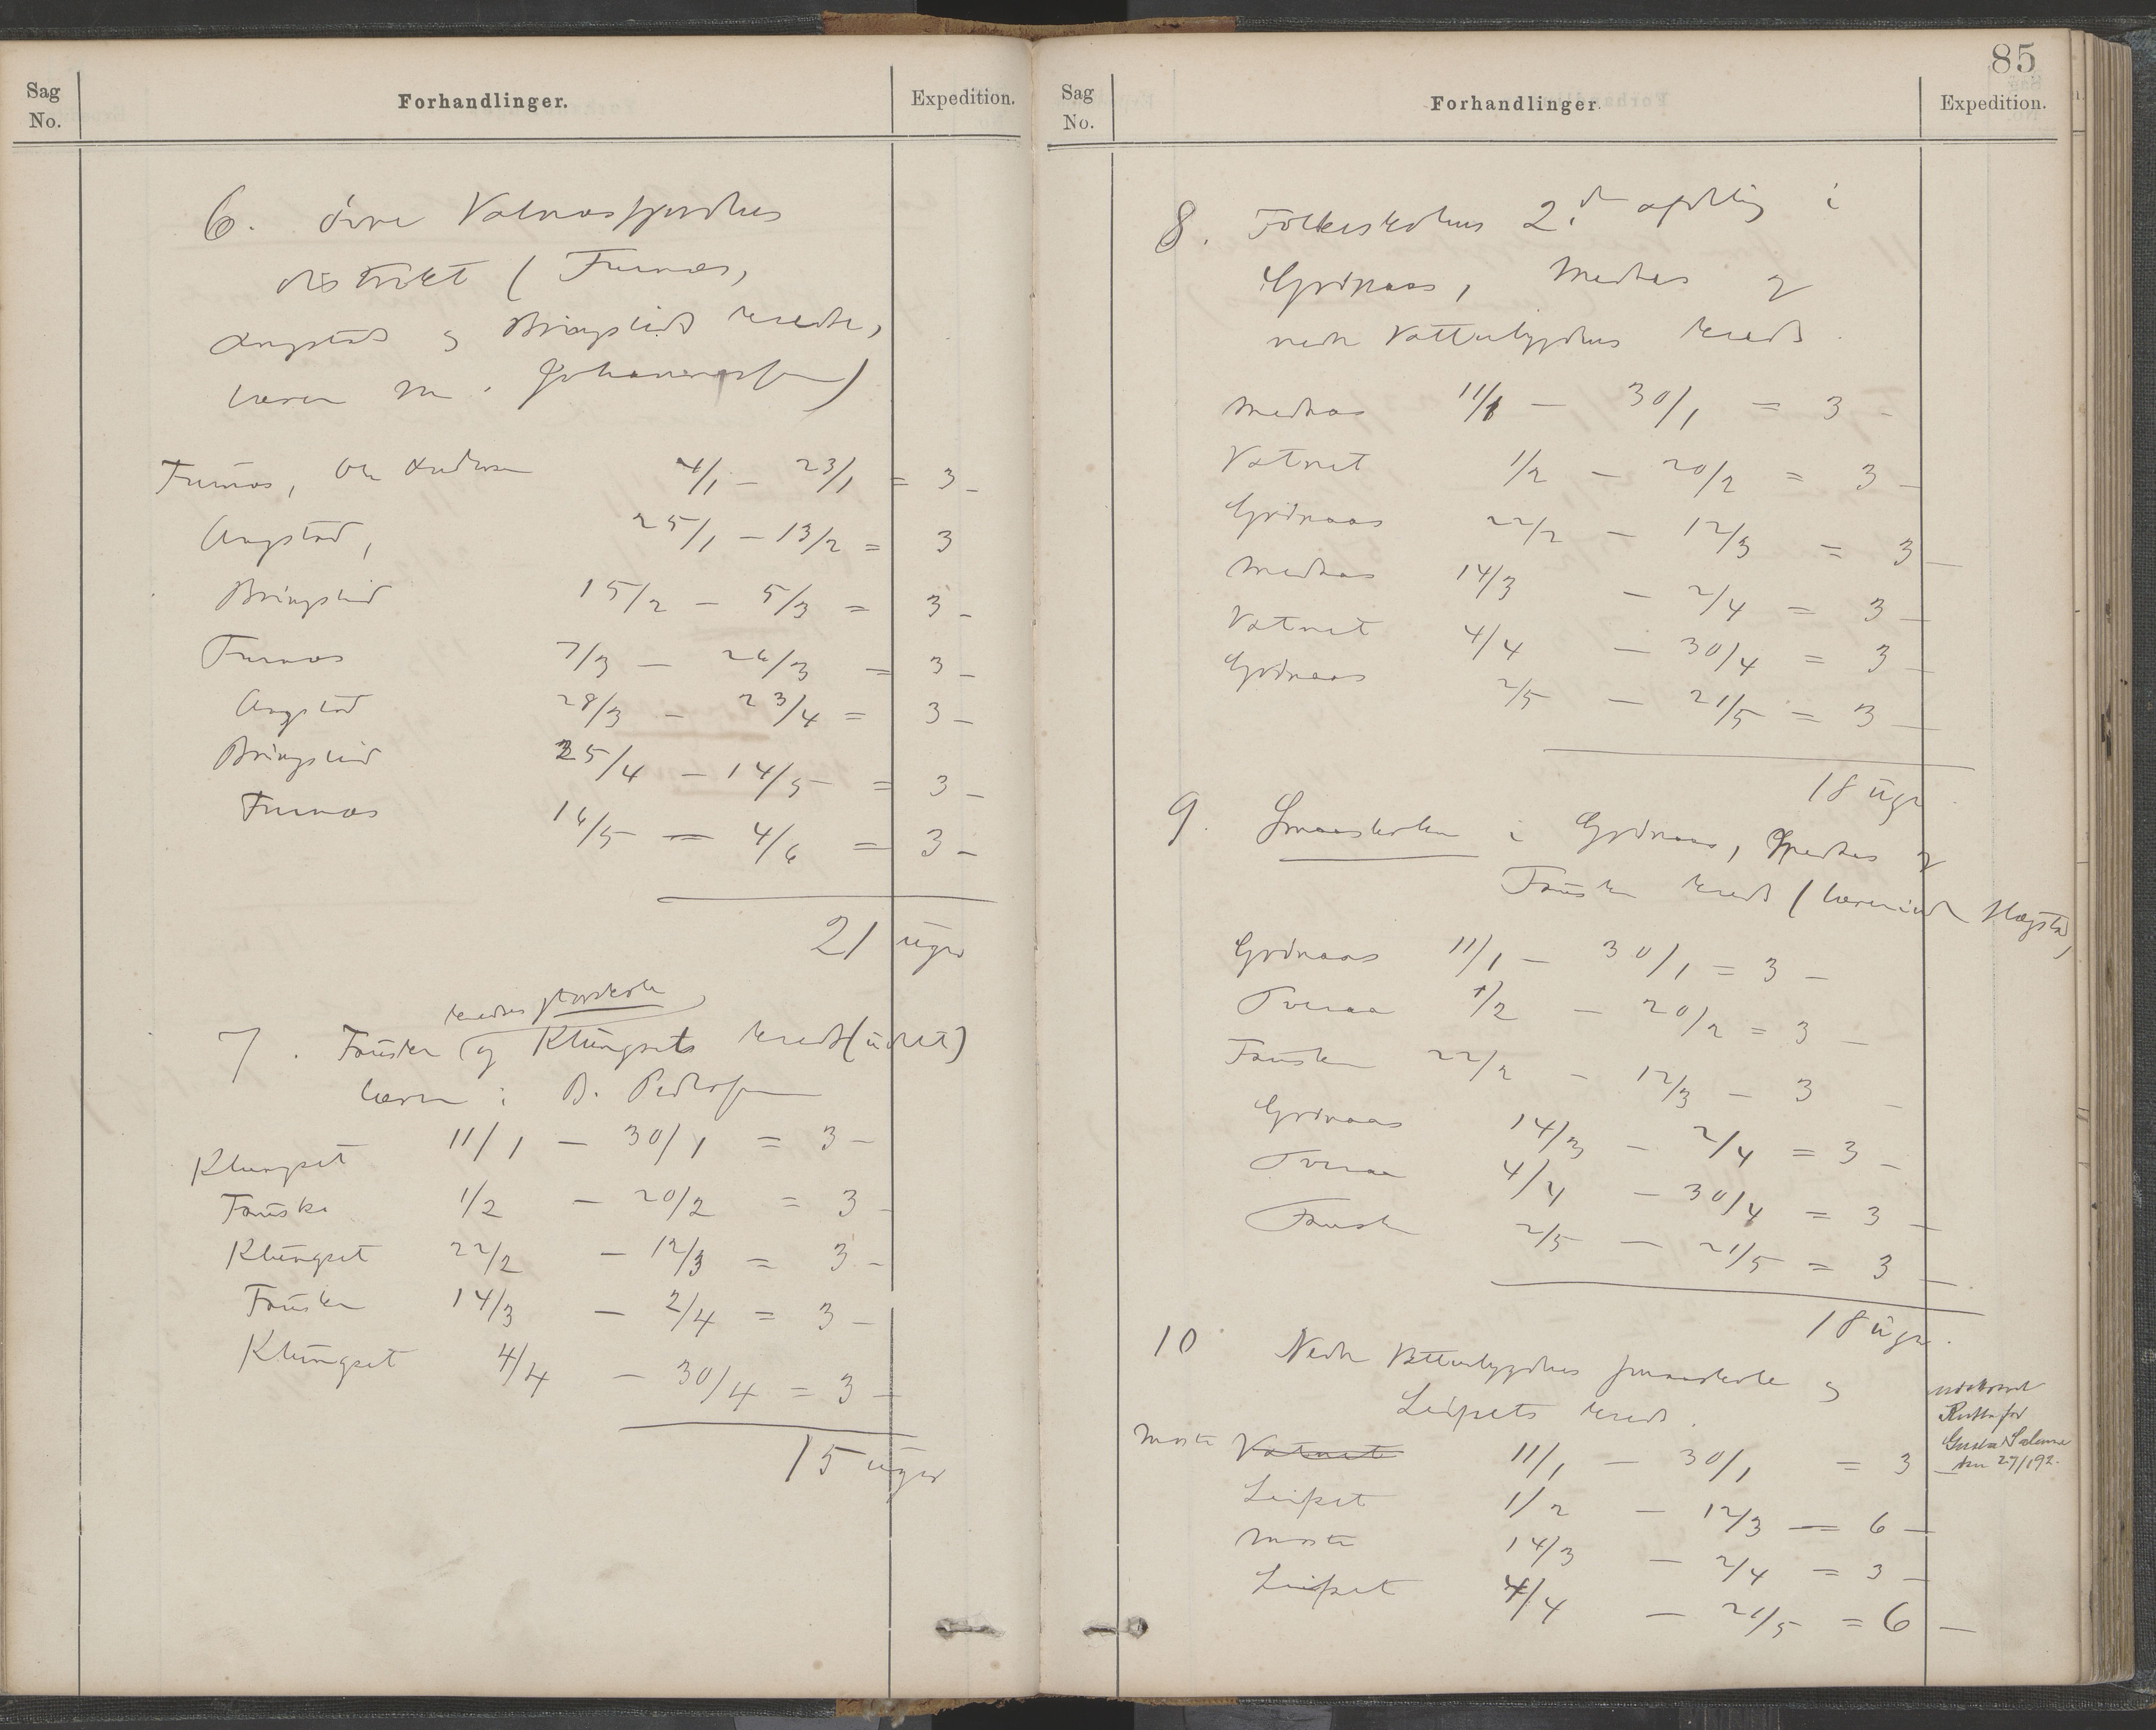 Sag No.
Forhandlinger.
Expedition.
6. övre Valnesfjordens
distrikt (Furnes,
Angstad og Bringslids kredse,
lærer M. Johannessen)
Furnes, Ole Andersen 4/1 – 23/1 = 3 –
Angstad, 25/1 – 13/2 = 3
Bringslid 15/2 – 5/3 = 3 –
Furnes 7/3 – 26/3 = 3 –
Angstad 28/3 – 23/4 = 3 –
Bringslid 25/4 – 14/5 = 3 –
Furnes 16/5 – 4/6 = 3 –
21 uger
kredses storskole
7. Fauske og Klungsets kreds (udelt)
lærer: B. Pedersen
Klungset 11/1 – 30/1 = 3 –
Fauske 1/2 – 20/2 = 3 –
Klungset 22/2 – 12/3 = 3 –
Fauske 14/3 – 2/4 = 3 –
Klungset 4/4 – 30/4 = 3 –
15 uger
85
Sag No.
Forhandlinger.
Expedition.
8. Folkeskolens 2den afdeling i
Grönaas, Medaas og
nedre Vattenbygdens kreds.
Medaas 11/1 – 30/1 = 3 –
Vatnet 1/2 – 20/2 = 3 –
Grönaas 22/2 – 12/3 = 3 –
Medaas 14/3 – 2/4 = 3 –
Vatnet 4/4 – 30/4 = 3 –
Grönaas 2/5 – 21/5 = 3 –
18 uger
9. Smaaskolen i Grönaas, Medaas og
Fauske kreds (lærerinde Hagstad)
Grönaas 11/1 – 30/1 = 3 –
Tveraa 1/2 – 20/2 = 3 –
Fauske 22/2 – 12/3 – 3 –
Grönaas 14/3 – 2/4 = 3 –
Tveraa 4/4 – 30/4 = 3 –
Fauske 2/5 – 21/5 = 3 –
18 uger.
10 Nedre Vattenbygdens smaaskole og
Leifsets kreds.
Moste Vatnet 11/1 – 30/1 = 3 –
Leifset 1/2 – 12/3 = 6 –
Moste 14/3 – 2/4 = 3 –
Leifset 4/4 – 21/5 = 6 –
den 27/1 92.